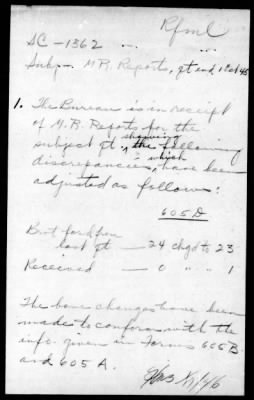 Rfml
SC-1362
Subj- M.R. Reports, qt end, 1 Oct 45
1. The Bureau is in receipt
of M.R. Reports for the
showing
subject qt, the following
discrepancies, which have been
adjusted as follows:
605D
Brot ford from
last qt — 24 chgd to 23
Received — 0 " " 1
The bove changes have been
made to conform with the
info. given in Forms 605B
and 605A.